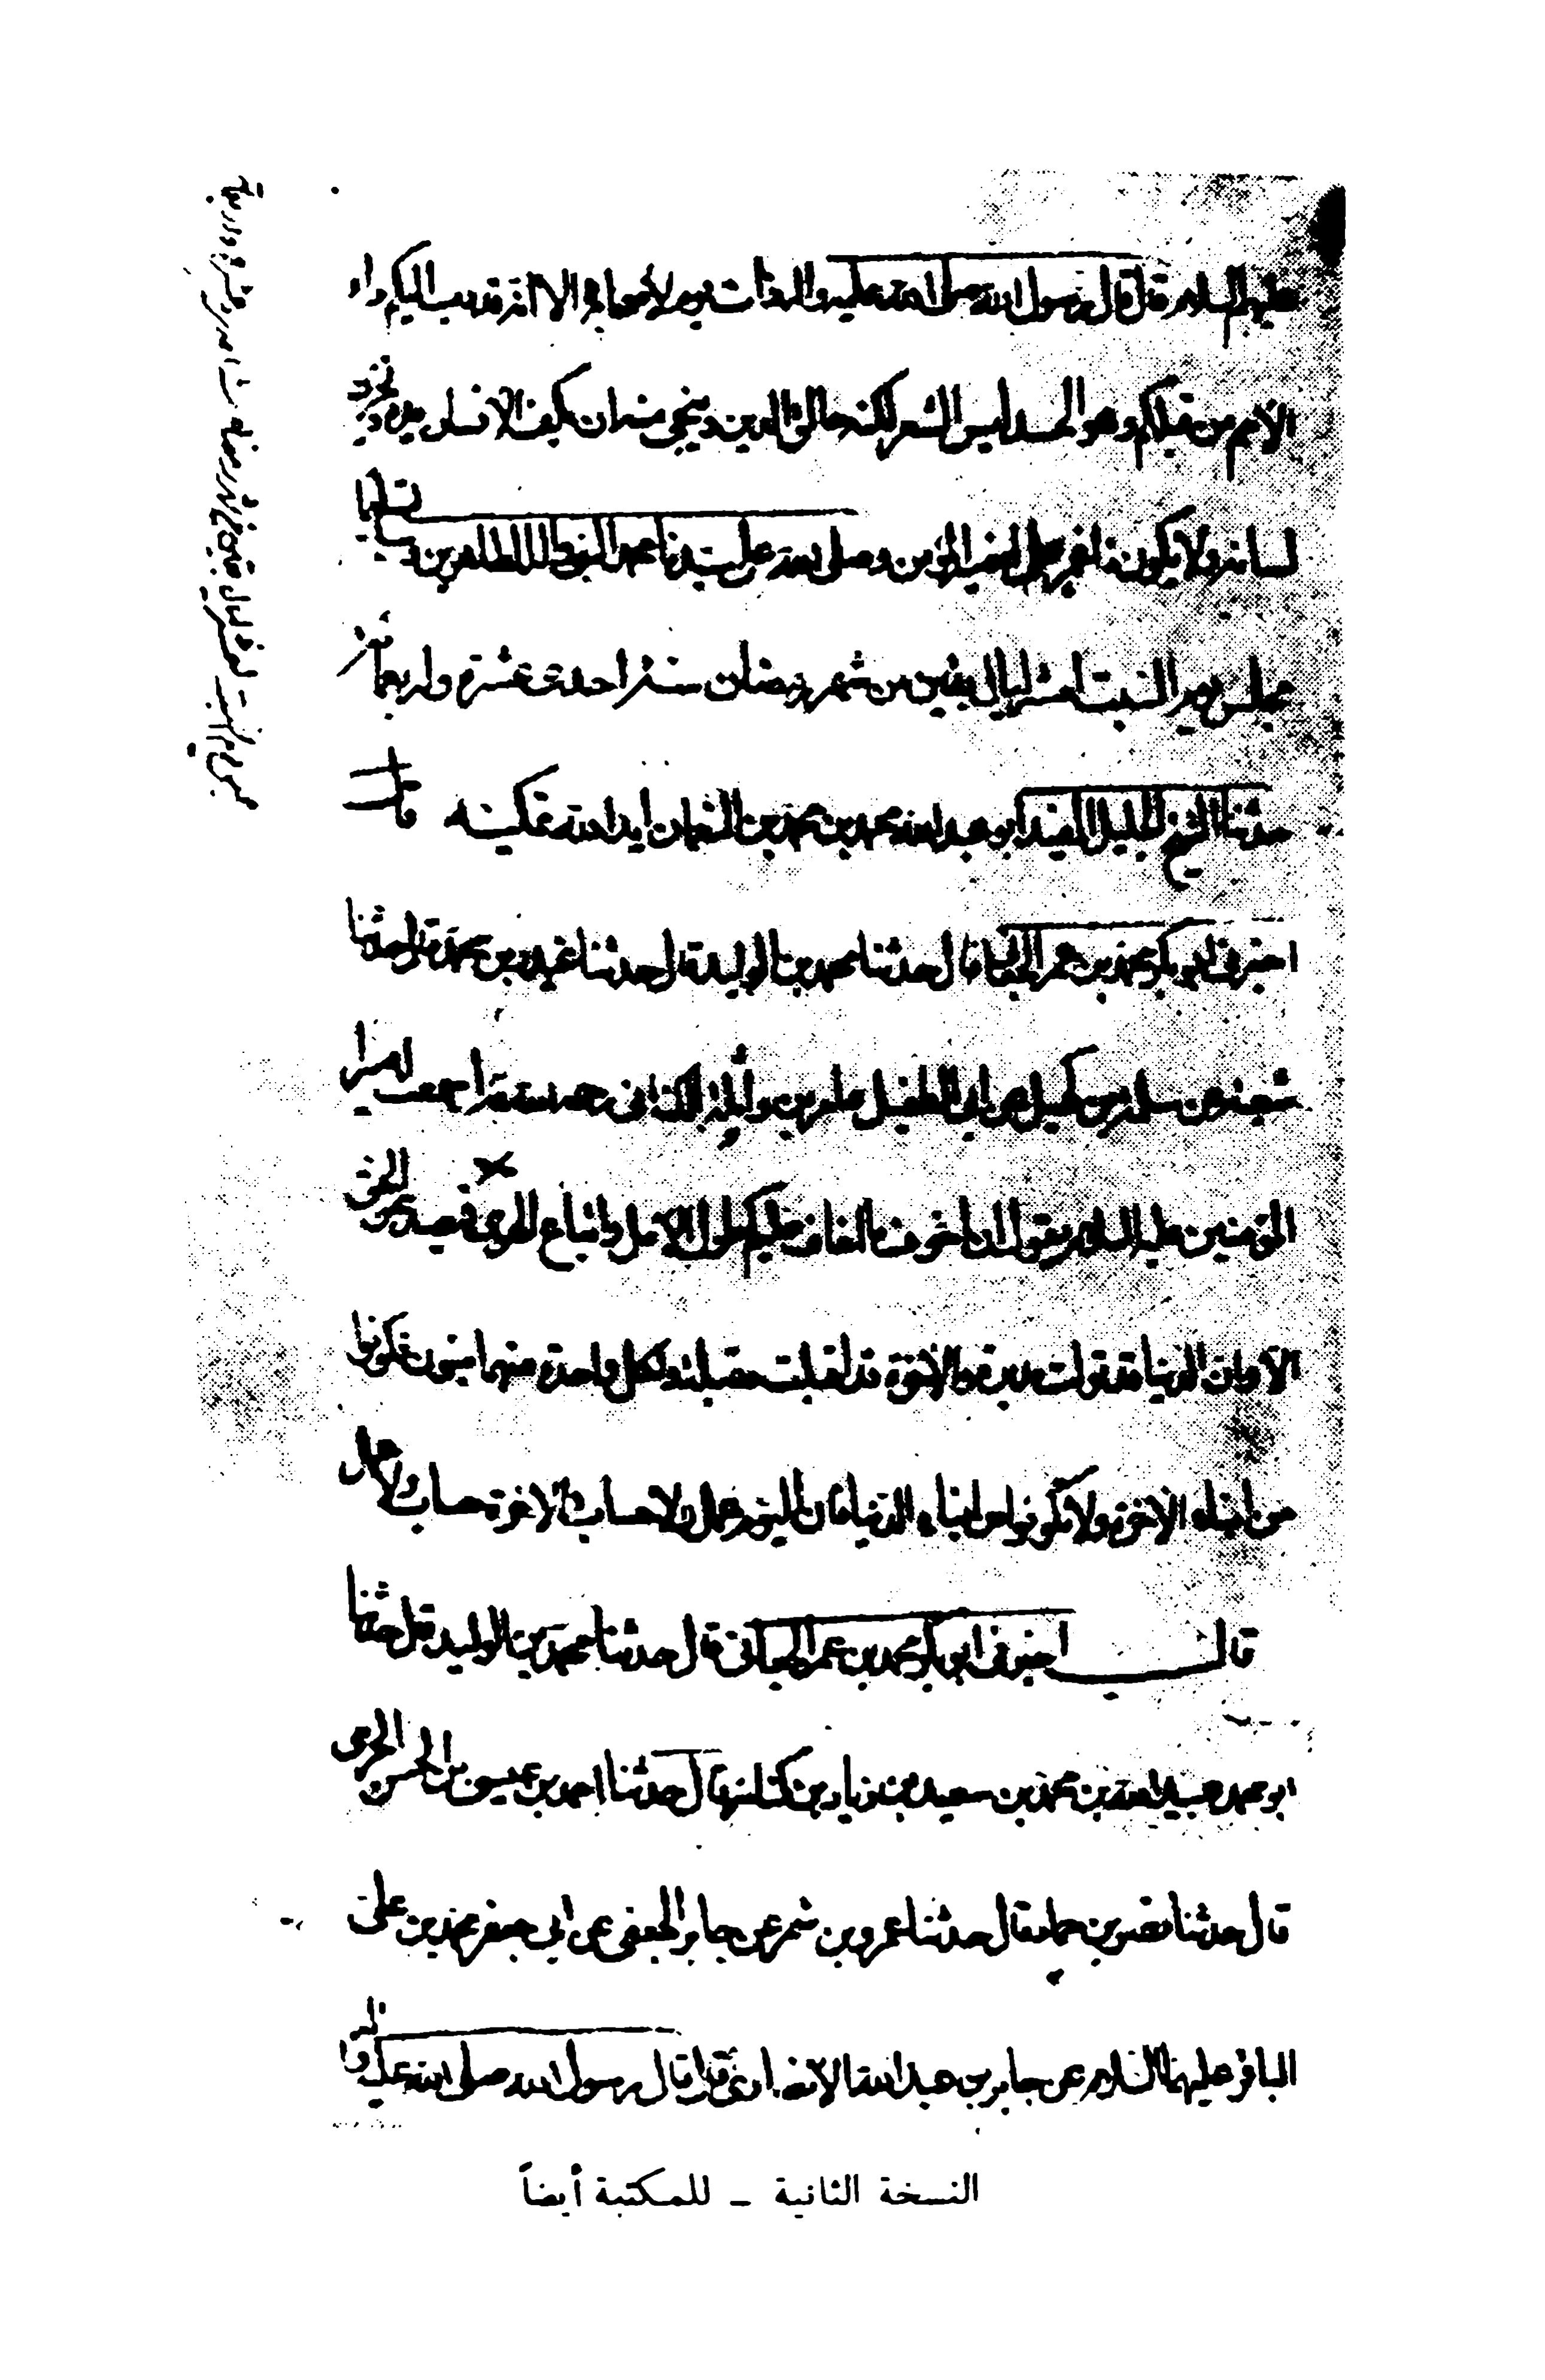 عليهم السلام قال قال رسول الله صلى الله عليه واله ذات يوم لاصحابه الا انه قد دب اليكم داء
الامم من قبلكم وهو الحسد ليس بحالق الشعر لكنه حالق الدين وينجى منه ان يكف الانسان يده ويخزن
لسانه ولا يكون ذا غمز على اخيه المؤمن وصلى الله على سيدنا محمد النبى واله الطاهرين وسلم تسليما
مجلس يوم السبت لعشر ليال بقين من شهر رمضان سنة احدى عشرة واربعمائة
حدثنا الشيخ الجليل المفيد ابو عبد الله محمد بن محمد بن النعمان ايد الله تمكينه قال
اخبرنى ابو بكر محمد بن عمر الجعابى قال حدثنا محمد بن الوليد قال حدثنا عنبر بن محمد قال حدثنا
شعبة عن سلمة بن كهيل عن ابى الطفيل عامر بن واثلة الكنانى رحمه الله قال سمعت امير
المؤمنين عليه السلام يقول ان اخوف ما اخاف عليكم طول الامل واتباع الهوى فيصد عن الحق
الا وان الدنيا قد تولت مدبرة والاخرة قد اقبلت مقبلة ولكل واحدة منهما بنون فكونوا
من ابناء الاخرة ولا تكونوا من ابناء الدنيا فان اليوم عمل ولا حساب والاخرة حساب ولا عمل
قال اخبرنى ابو بكر محمد بن عمر الجعابى قال حدثنا محمد بن الوليد قال حدثنا
ابو محمد عبد الله بن محمد بن سعيد بن زياد بن كنانة قال حدثنا احمد بن عيسى بن الحسن الجرمى
قال حدثنا نصر بن حماد قال حدثنا عمرو بن شمر عن جابر الجعفى عن ابى جعفر محمد بن على
الباقر عليهما السلام عن جابر بن عبد الله الانصارى قال قال رسول الله صلى الله عليه واله
النسخة الثانية - للمكتبة أيضاً